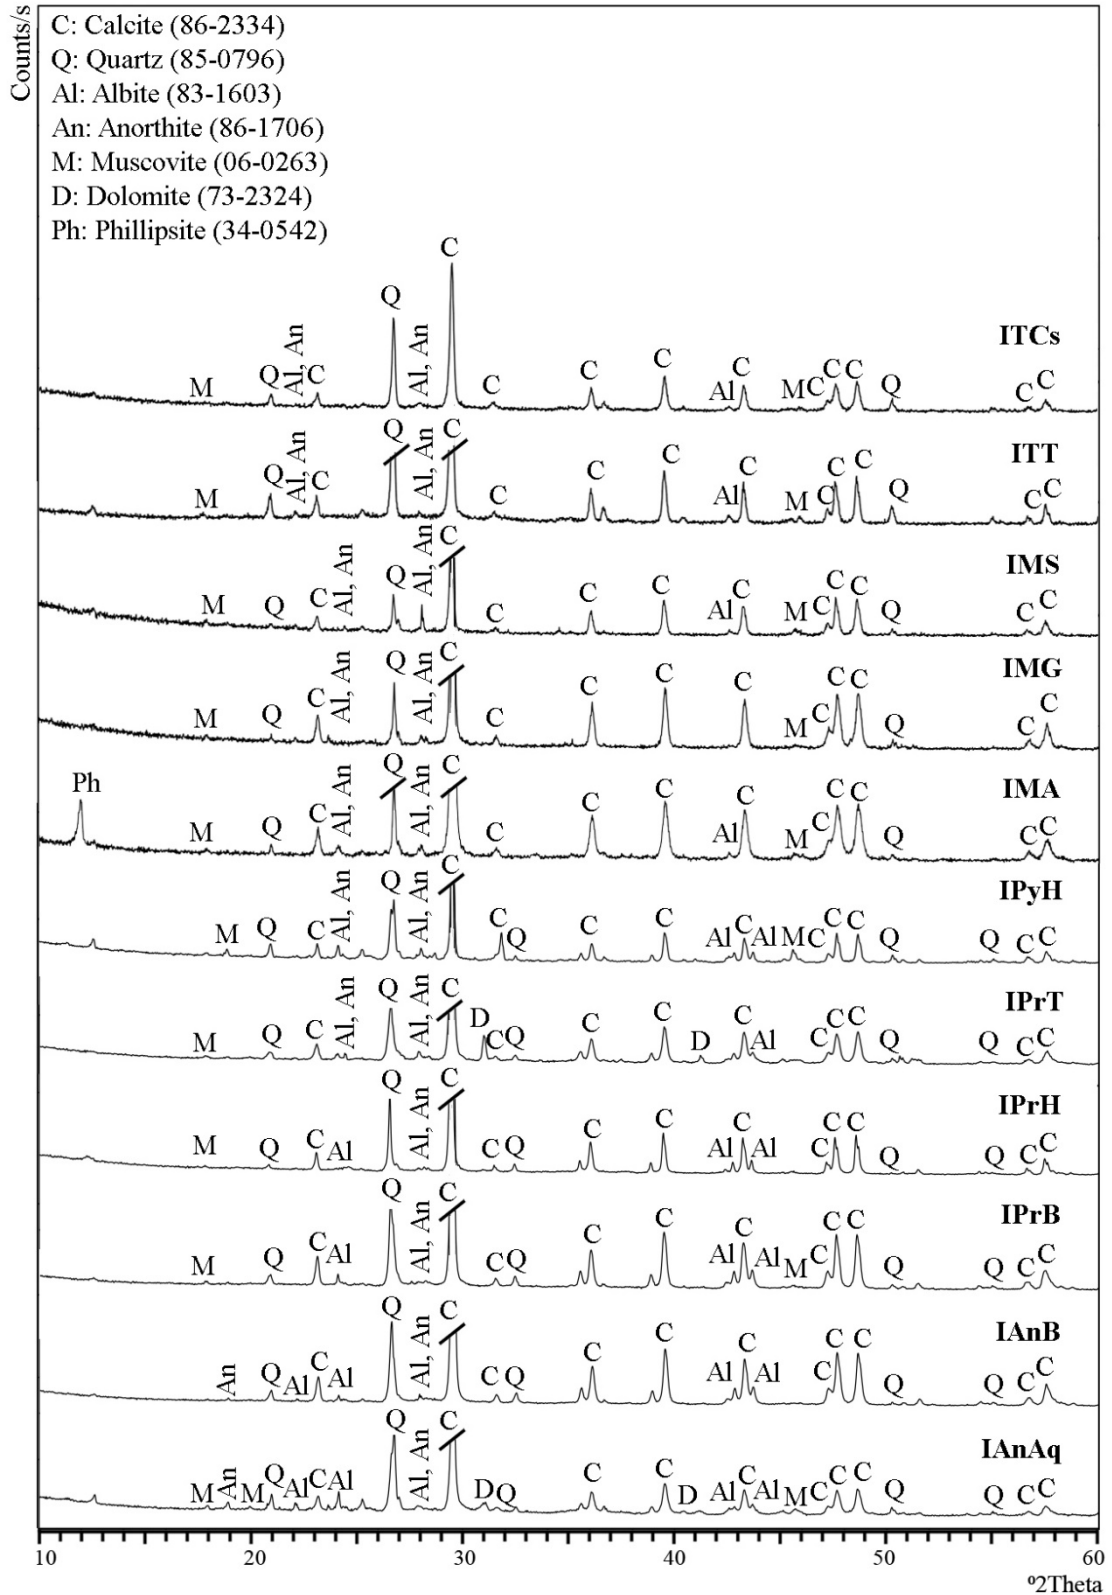 Counts/s
C: Calcite (86-2334)
Q: Quartz (85-0796)
Al: Albite (83-1603)
An: Anorthite (86-1706)
M: Muscovite (06-0263)
D: Dolomite (73-2324)
Ph: Phillipsite (34-0542)
M Q Al, An C Q Al, An C C C C Al C M C C C Q C C
ITCs
M Q Al, An C Q Al, An C C C C Al C M C C C Q C C
ITT
M Q C Al, An Q Al, An C C C C Al C M C C C Q C C
IMS
M Q C Al, An Q Al, An C C C C C M C C C Q C C
IMG
Ph M Q C Al, An Q Al, An C C C C Al C M C C C Q C C
IMA
M Q C Al, An Q Al, An C C Q C C Al C Al M C C C Q Q C C
IPyH
M Q C Al, An Q Al, An C D C Q C C D C Al C C C Q Q C C
IPrT
M Q C Al Q Al, An C C Q C C Al C Al C C C Q Q C C
IPrH
M Q C Al Q Al, An C C Q C C Al C Al M C C C Q Q C C
IPrB
An Q Al C Al Q Al, An C C Q C C Al C Al C C C Q Q C C
IAnB
M An M Q Al C Al Q Al, An C D Q C C D Al C Al M C C C Q Q C C
IAnAq
10 20 30 40 50 60
º2Theta